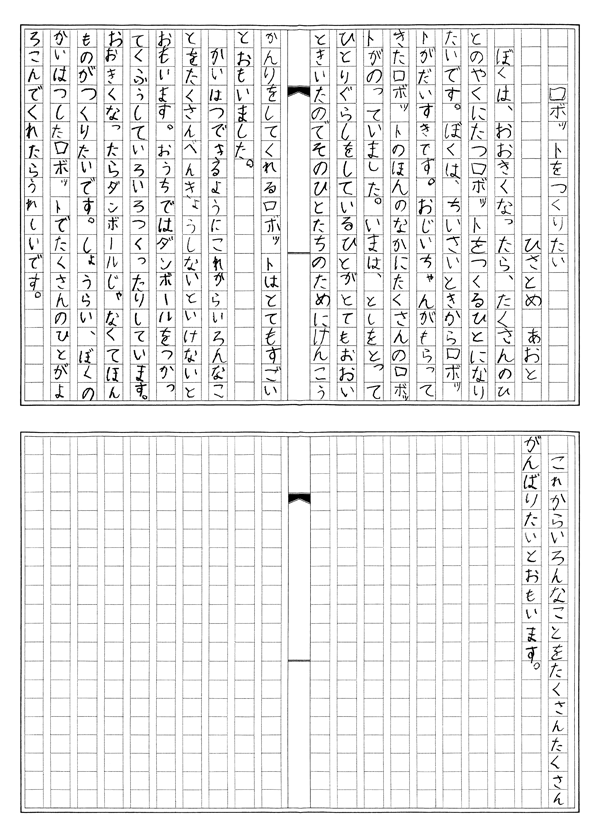 ロボットをつくりたい
ひさとめ　あおと
ぼくは、おおきくなったら、たくさんのひ
とのやくにたつロボットをつくるひとになり
たいです。ぼくは、ちいさいときからロボッ
トがだいすきです。おじいちゃんがもらって
きたロボットのほんのなかにたくさんのロボッ
トがのっていました。いまは、としをとって
ひとりぐらしをしているひとがとてもおおい
ときいたのでそのひとたちのためにけんこう
かんりをしてくれるロボットはとてもすごい
とおもいました。
かいはつできるようにこれからいろんなこ
とをたくさんべんきょうしないといけないと
おもいます。おうちではダンボールをつかっ
てくふうしていろいろつくったりしています。
おおきくなったらダンボールじゃなくてほん
ものがつくりたいです。しょうらい、ぼくの
かいはつしたロボットでたくさんのひとがよ
ろこんでくれたらうれしいです。
これからいろんなことをたくさんたくさん
がんばりたいとおもいます。